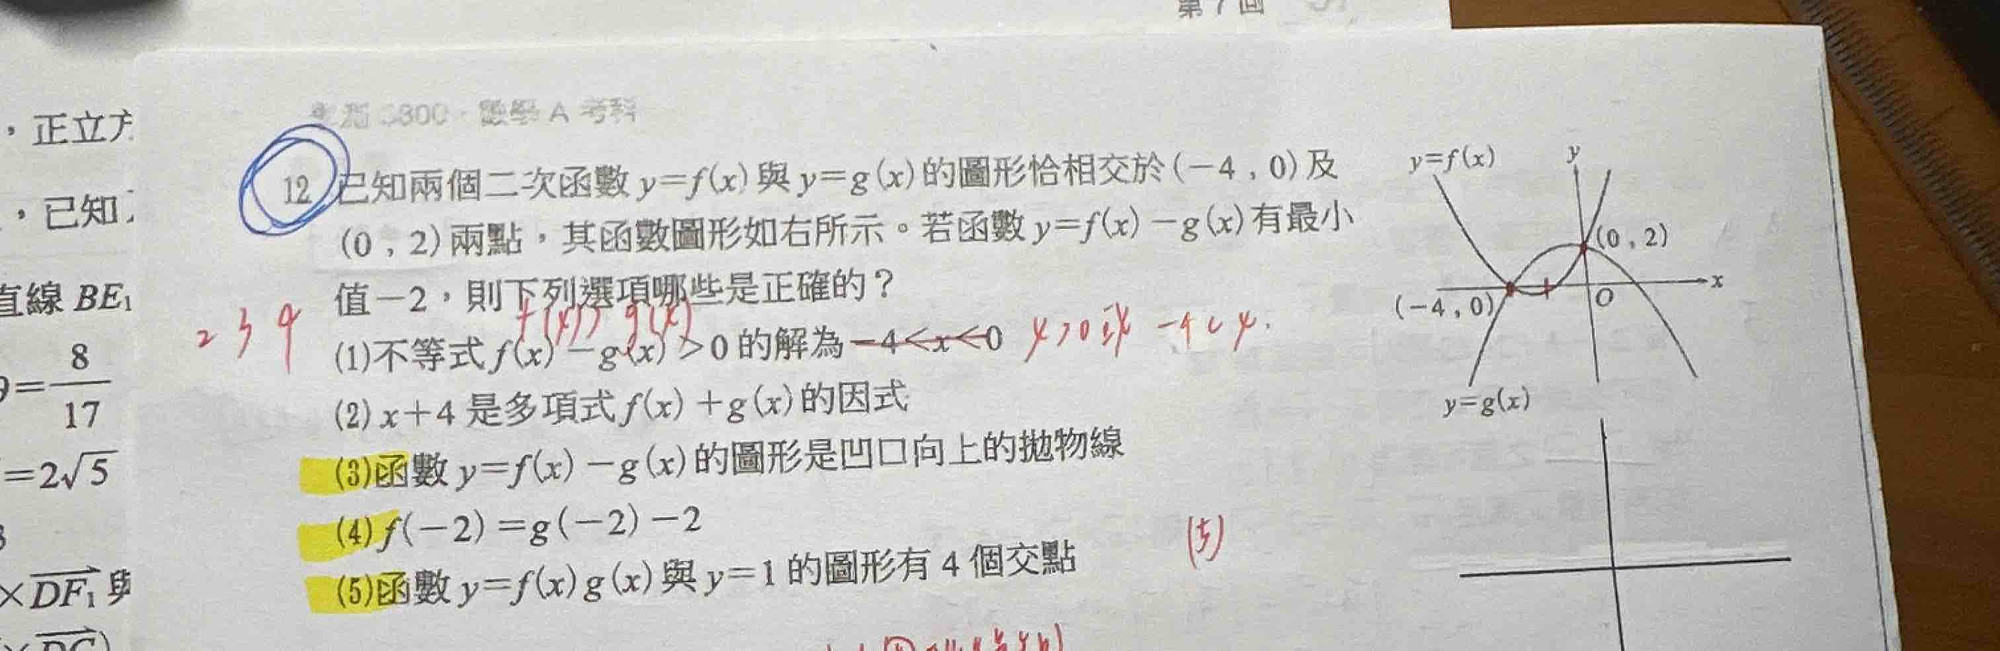 第7回
，正立方
，已知
直線 BE₁
=8/17
=2√5
×DF₁ 與
數學 A 考科
12 已知兩個二次函數 y=f(x) 與 y=g(x) 的圖形恰相交於 (−4 , 0) 及
(0 , 2) 兩點，其函數圖形如右所示。若函數 y=f(x)−g(x) 有最小
值−2，則下列選項哪些是正確的？
f(x)> g(x)
2 3 4
(1)不等式 f(x)−g(x)>0 的解為−4<x<0
(2) x+4 是多項式 f(x)+g(x) 的因式
(3)函數 y=f(x)−g(x) 的圖形是凹口向上的拋物線
(4) f(−2)=g(−2)−2
(5)函數 y=f(x)g(x) 與 y=1 的圖形有 4 個交點
(5)
y=f(x)
y
(0 , 2)
x
(−4 , 0)
O
y=g(x)